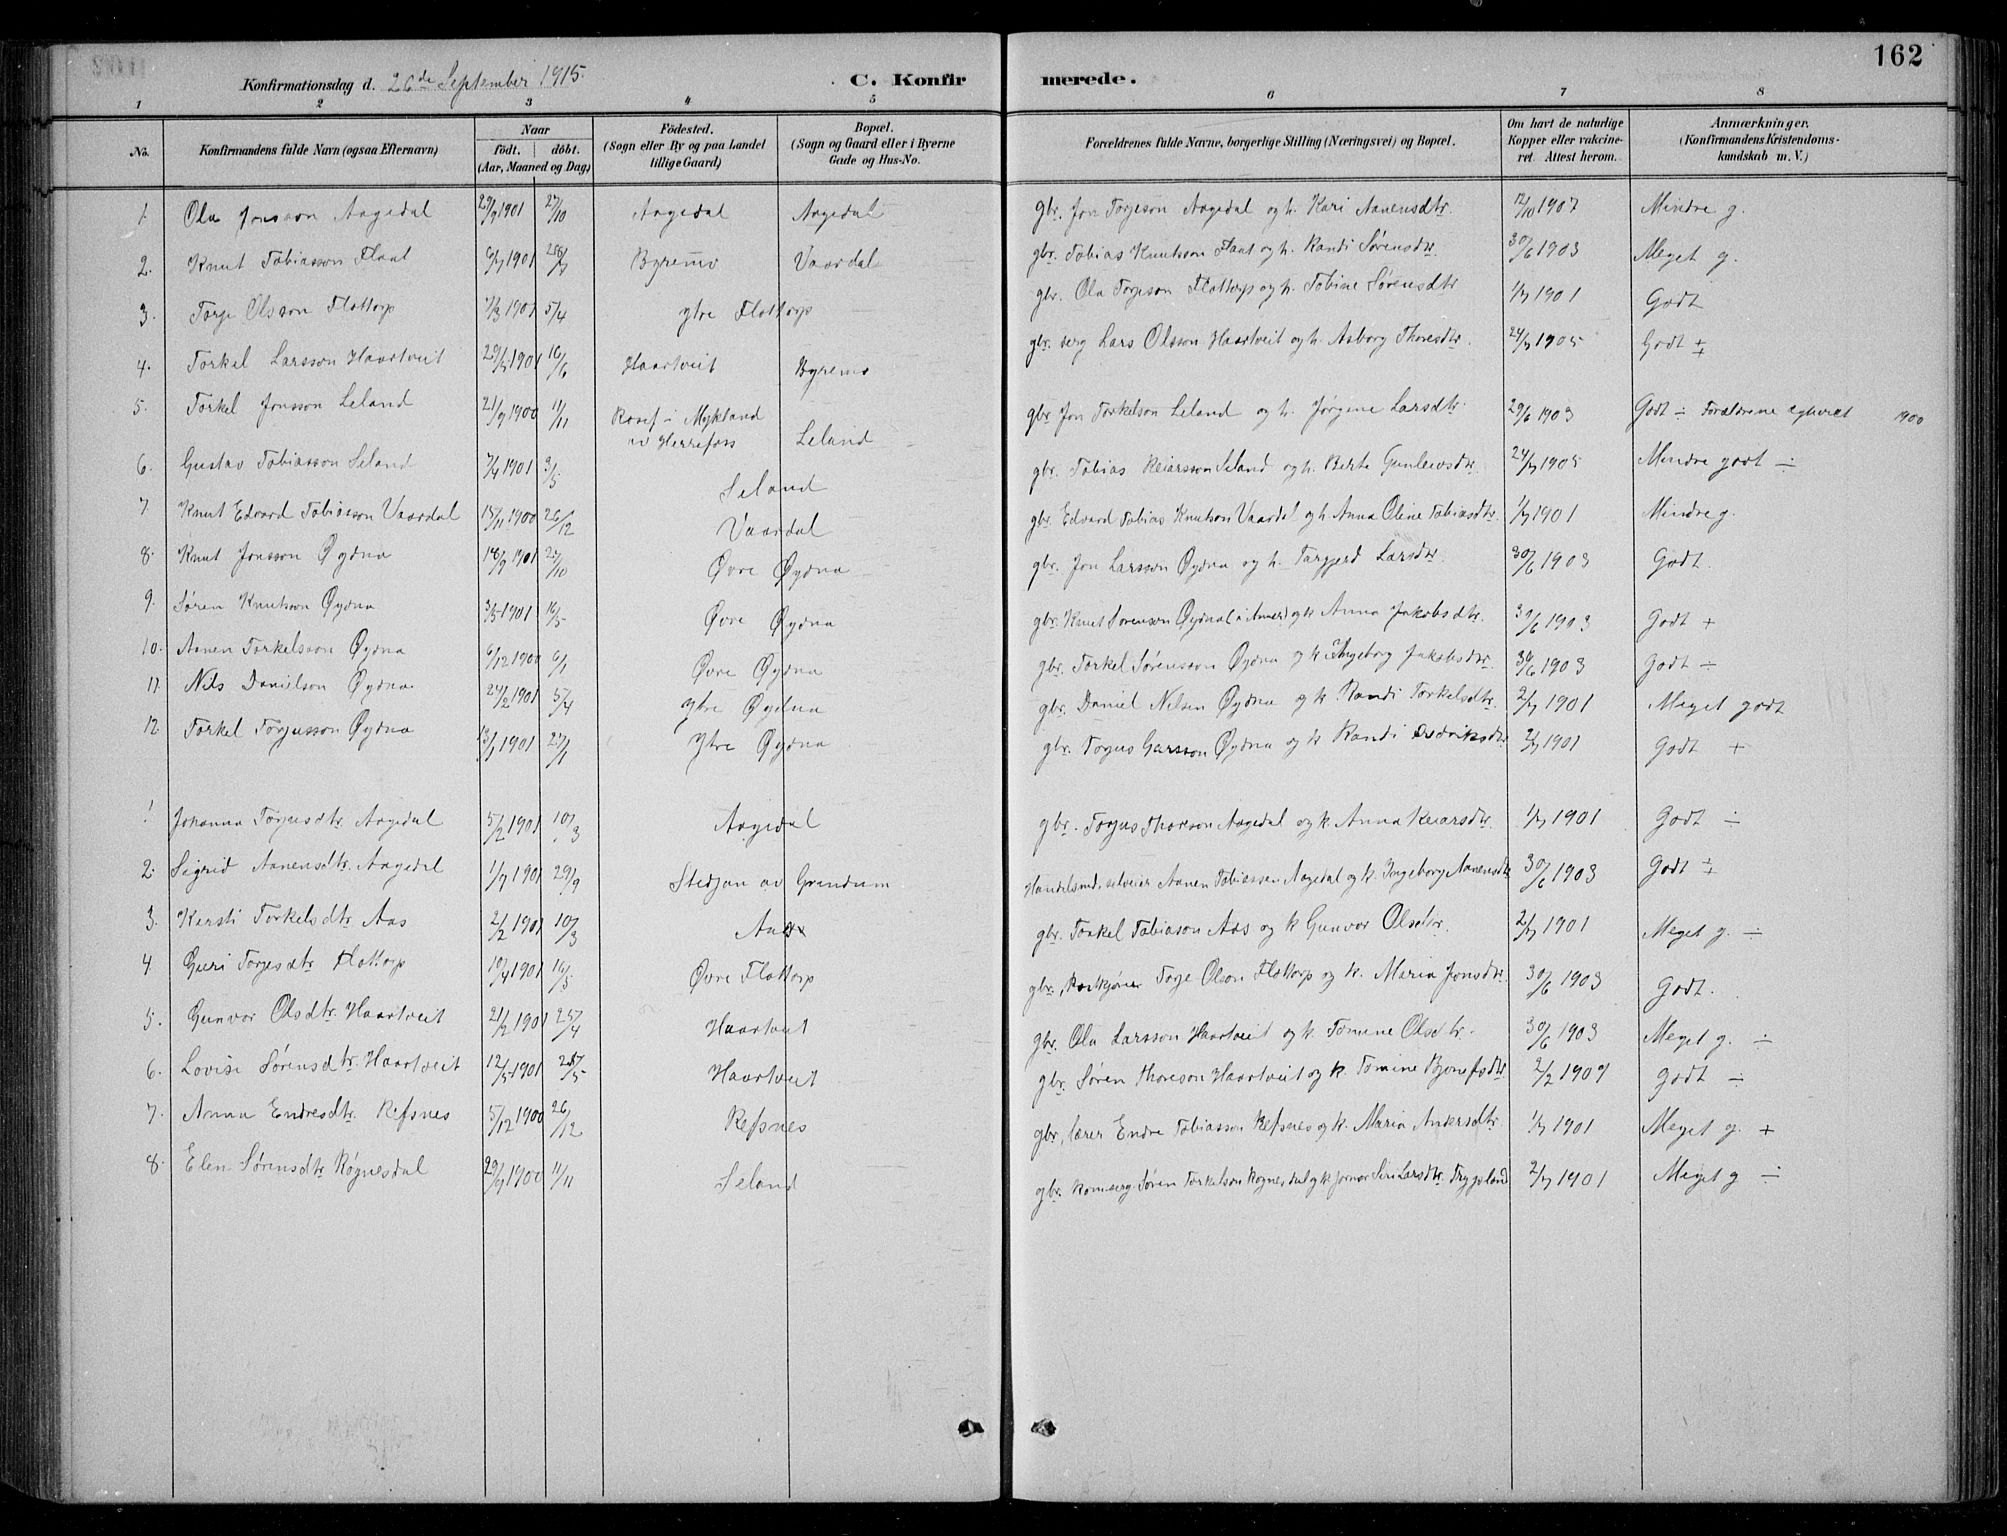 162
Konfirmationsdag d. 26de September 1915.
C. Konfirmerede.
1 2 3 4 5 6 7 8
No. Konfirmandens fulde Navn (ogsaa Efternavn) Naar født. døbt. (Aar, Maaned og Dag) Fødested. (Sogn eller By og paa Landet tillige Gaard) Bopæl. (Sogn og Gaard eller i Byerne Gade og Hus-No. Forældrenes fulde Navne, borgerlige Stilling (Næringsvei) og Bopæl. Om havt de naturlige Kopper eller vakcineret Attest herom. Anmærkninger. (Konfirmandens Kristendomskundskab m. V.)
1. Ola Jonsson Aagedal 29/9 1901 27/10 Aagedal Aagedal gbr. Jon Torjeson Aagedal og h. Kari Aanensdtr. 12/10 1907 Mindre g.
2. Knut Tobiasson Flaat 6/7 1901 28/7 Byremo Vaardal gbr. Tobias Knutsson Flaat og h. Randi Sørensdtr. 30/6 1903 Meget g.
3. Torje Olsson Flottorp 7/3 1901 5/4 ytre Flottorp gbr. Ola Torjeson Flottorp og h. Tobine Sørensdtr 1/7 1901 Godt
4. Torkel Larsson Haartveit 29/5 1901 16/6 Haartveit Byremo gbr. serg Lars Olsson Haartveit og h. Asborg Thoresdtr. 24/7 1905 Godt ∓
5. Torkel Jonsson Leland 21/9 1900 11/11 Rosef i Mykland av Herrefoss Leland gbr Jon Torkelson Leland og h. Jørgene Larsdtr. 29/6 1903 Godt ÷ Forældrene 1900
6. Gustav Tobiasson Seland 7/4 1901 9/5 Seland gbr. Tobias Reiarsson Seland og h. Berte Gunlevsdtr. 24/7 1905 Mindre godt ÷
7 Knut Edvard Tobiasson Vaardal 15/11 1900 26/12 Vaardal gbr. Edvard Tobias Knutson Vaardal og h Anna Oline Tobiasdtr. 1/7 1901 Mindre g.
8. Knut Jonsson Øydna 18/9 1901 27/10 Øvre Øydna gbr. Jon Larsson Øydna og h. Targjerd Larsdtr. 30/6 1903 Godt.
9. Søren Knutson Øydna 3/5 1901 16/5 Øvre Øydna gbr. Knut Sørenson Øydna (i Amer) og k Anna Jakobsdtr. 30/6 1903 Godt +
10. Aanen Torkelsson Øydna 6/12 1900 6/1 Øvre Øydna gbr. Torkel Sørensson Øydna og k Ingeborg Jakobsdtr. 30/6 1903 Godt ÷
11. Nils Danielson Øydna 24/2 1901 5/4 Ytre Øydna gbr. Daniel Nilsen Øydna og k Randi Torkelsdtr. 2/7 1901 Meget godt
12. Torkel Torjusson Øydna 13/1 1901 27/1 Ytre Øydna gbr. Torjus Larsson Øydna og k Randi 2/7 1901 Godt +
1 Johanna Torjusdtr. Aagedal 5/2 1901 10/3 Aagedal gbr. Torjus Thorson Aagedal og k. Anna Reiarsdtr. 1/7 1901 Godt ÷
2. Sigrid Aanensdtr. Aagedal 1/9 1901 29/9 Stedjan av Grindum Handelsmd. selveier Aanen Tobiassen Aagedal og k. Ingeborg Aanensdtr 30/6 1903 Godt ∓
3. Kersti Torkelsdtr Aas 2/2 1901 10/3 Aas gbr. Torkel Tobiason Aas og k Gunvor Olsdtr. 2/7 1901 Meget g. ÷
4 Guri Torjesdtr Flottorp 10/4 1901 16/5 Øvre Flottorp gbr. Torje Olson Flottorp og k. Maria Jonsdtr 30/6 1903 Godt.
5. Gunvor Olsdtr. Haartveit 21/2 1901 25/4 Haartveit gbr. Ola Larsson Haartveit og k. Tomine Olsdtr. 30/6 1903 Meget g. ÷
6. Lovise Sørensdtr. Haartveit 12/5 1901 28/5 Haartveit gbr. Søren Thoreson Haartveit og k. Tomine 2/2 1909 Godt ÷
7. Anna Endresdtr. Refsnes 5/12 1900 26/12 Refsnes gbr, lærer Endre Tobiasson Refsnes og k. Maria Andersdtr. 1/7 1901 Meget g. +
8. Elen Sørensdtr Røgnesdal 29/9 1900 11/11 Seland gbr. Søren Torkelson Siri Larsdtr. Trygsland 2/7 1901 Meget g ÷